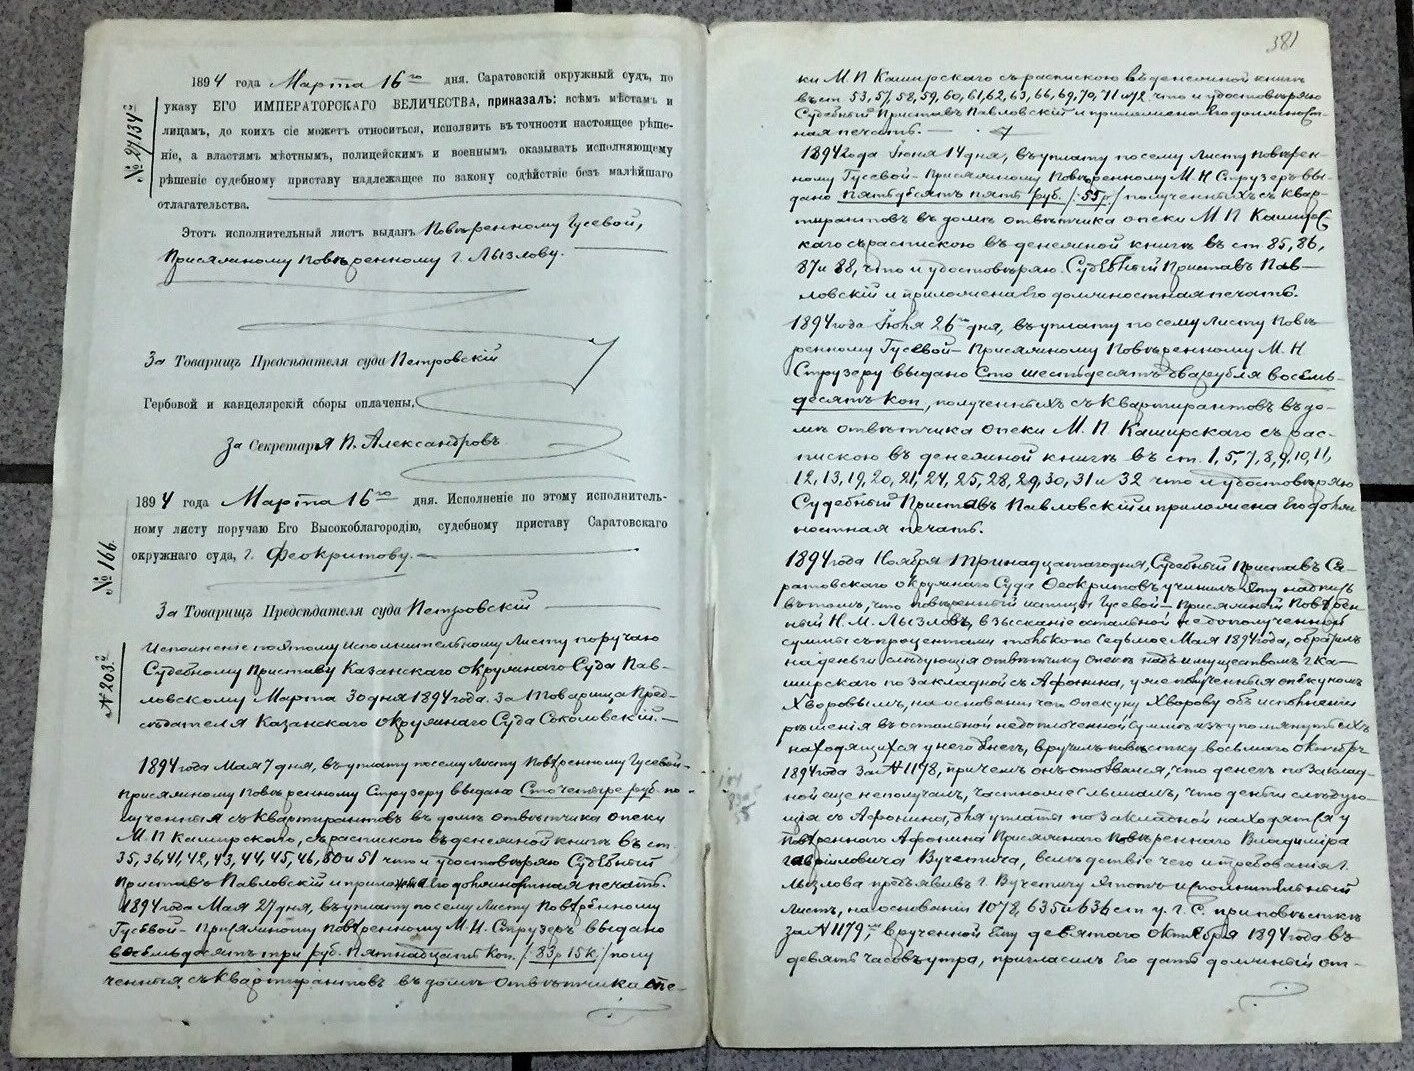 1894 года Марта 16го дня. Саратовскій окружный судъ, по
указу ЕГО ИМПЕРАТОРСКАГО ВЕЛИЧЕСТВА, приказалъ: всѣмъ мѣстамъ и
лицамъ, до коихъ сіе можетъ относиться, исполнить въ точности настоящее рѣше-
ніе, а властямъ мѣстнымъ, полицейскимъ и военнымъ оказывать исполняющему
рѣшеніе судебному приставу надлежащее по закону содѣйствіе безъ малѣйшаго
отлагательства.
№ 27134
Этотъ исполнительный листъ выданъ Повѣренному Гусевой,
Присяжному Повѣренному г. Лызлову.
За Товарищъ Предсѣдателя суда Петровскій
Гербовой и канцелярскій сборы оплачены,
За Секретаря П. Александровъ
1894 года Марта 16го дня. Исполненіе по этому исполнитель-
ному листу поручаю Его Высокоблагородію, судебному приставу Саратовскаго
окружнаго суда, г. Феокритову.
№ 166.
За Товарищъ Предсѣдателя суда Петровскій
Исполненіе по этому Исполнительному Листу поручаю
Судебному Приставу Казанскаго Окружнаго Суда Пав-
ловскому Марта 30 дня 1894 года. За Товарища Пред-
сѣдателя Казанскаго Окружнаго Суда Соколовскій.
№ 203
1894 года Мая 7 дня, въ уплату по сему Листу Повѣренному Гусевой-
Присяжному Повѣренному Струзеру выдано Сто четыре руб. по-
лученныя съ квартирантовъ въ домѣ отвѣтчика опеки
М. П. Каширскаго, съ распискою въ денежной книгѣ въ ст.
35, 36, 41, 42, 43, 44, 45, 46, 50 и 51 что и удостовѣряю Судебный
Приставъ Павловскій и приложена Его должностная печать.
1894 года Мая 27 дня, въ уплату по сему Листу Повѣренному
Гусевой- Присяжному Повѣренному М. Н. Струзеръ выдано
восемьдесятъ три руб. Пятнадцать Коп. /83р 15к/ полу
ченныя съ квартирантовъ въ домѣ отвѣтчика опе-
381
ки М. П. Каширскаго съ распискою въ денежной книгѣ
въ ст. 53, 57, 58, 59, 60, 61, 62, 63, 66, 69, 70, 71 и 72 что и удостовѣряю
Судебный Приставъ Павловскій и приложена Его должност-
ная печать.
1894 года Іюня 14 дня, въ уплату по сему Листу Повѣрен-
ному Гусевой- Присяжному Повѣренному М. Н. Струзеръ вы-
дано пятьдесятъ пять руб. /55р/ полученныхъ съ квар-
тирантовъ въ домѣ отвѣтчика опеки М. П. Каширс
каго съ распискою въ денежной книгѣ въ ст 85, 86,
87 и 88, что и удостовѣряю. Судебный Приставъ Пав-
ловскій и приложена Его должностная печать.
1894 года Іюня 26го дня, въ уплату по сему Листу Повѣ-
ренному Гусевой- Присяжному Повѣренному М. Н.
Струзеру выдано Сто шестьдесятъ два рубля восемь-
десятъ коп, полученныхъ съ квартирантовъ въ до-
мѣ отвѣтчика опеки М. П. Каширскаго съ рас-
пискою въ денежной книгѣ въ ст. 1, 5, 7, 8, 9, 10, 11,
12, 13, 19, 20, 21, 24, 25, 28, 29, 30, 31 и 32 что и удостовѣряю
Судебный Приставъ Павловскій и приложена Его долж
ностная печать.
1894 года Ноября тринадцатаго дня, Судебный Приставъ Са-
ратовскаго окружнаго Суда Феокритовъ учинилъ Сію надпись
въ томъ, что повѣренный истицы Гусевой- Присяжный Повѣрен
ный Н. М. Лызловъ, взысканіе остальной недополученной
суммы съ процентами только по Седьмое Мая 1894 года, обратилъ
на деньги слѣдующія отвѣтчику опекѣ надъ имуществомъ г. Ка-
ширскаго по закладной съ Афонина, уже полученныя опекуномъ
Хворовымъ, на основаніи чего опекуну Хворову объ исполненіи
рѣшенія въ остальной недоплоченной Суммѣ изъ упомянутыхъ
находящихся у него денегъ, вручилъ повѣстку восьмаго Октября
1894 года за № 1178, причемъ онъ отозвался, что денегъ по заклад-
ной еще не получалъ, частнымъ слышалъ, что деньги слѣдую-
щія съ Афонина, для уплаты по закладной находятся у
Повѣреннаго Афонина Присяжнаго Повѣреннаго Владиміра
Гавриловича Вучетича, вслѣдствіе чего и требованія г.
Лызлова предъявивъ г. Вучетичу Этотъ исполнительный
Листъ, на основаніи 1078, 635 и 636 ст у. г. С. при повѣсткѣ
за № 1179, врученной Ему девятаго Октября 1894 года въ
девять часовъ утра, пригласилъ Его дать должный от-